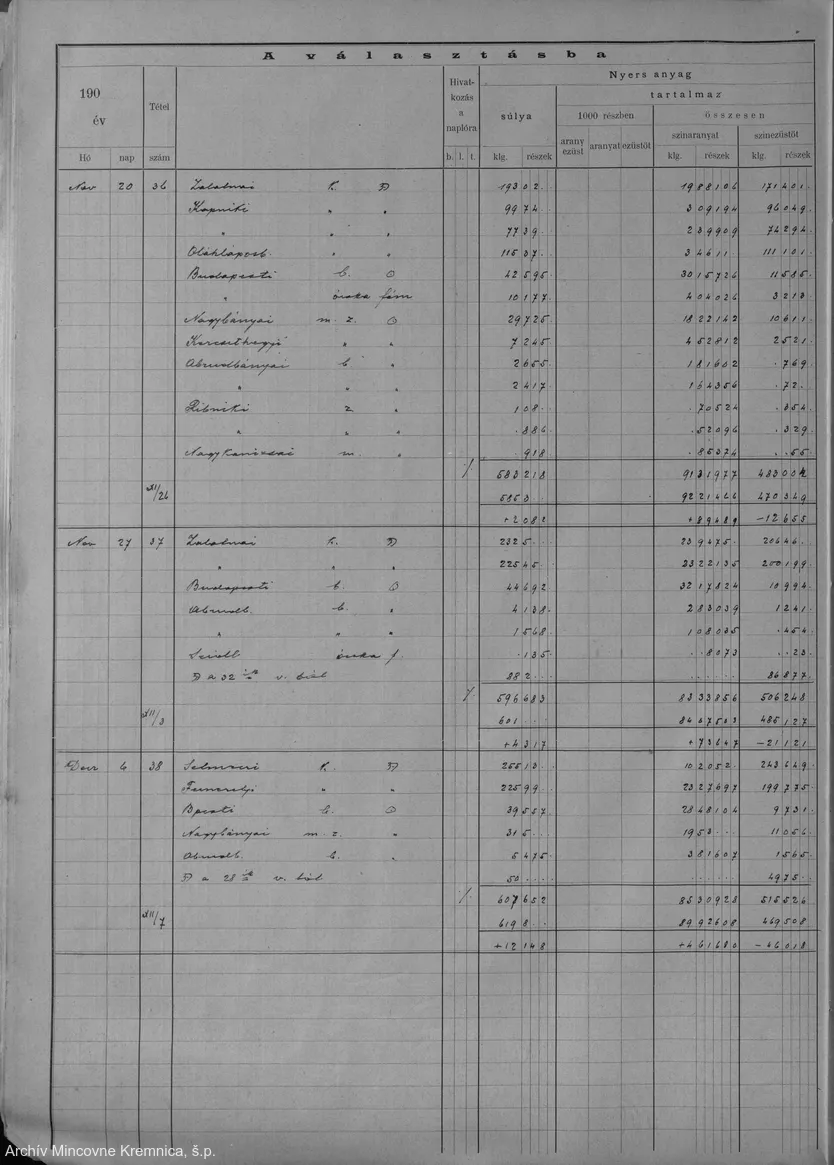 A választásba
190 év
Tétel szám
Hivatkozás a naplóra
Nyers anyag
súlya
tartalmaz
1000 részben
összesen
arany ezüst
aranyat
ezüstöt
színaranyat
színezüstöt
Hó nap b. l. t. klg. részek klg. részek klg. részek
Nov 20 36 Zalatnai K. 19302 1988106 171401
Kapniki " " 9974 309194 96049
" " " 7739 239909 74294
" " 11537 34611 111101
Budapesti b. O 42595 3015726 11585
" ócska fém 10177 404026 3213
Nagybányai m. z. O 29725 1822142 10611
" " 7245 452812 2521
Abrudbányai b " 2655 181602 769
" " " 2417 164356 72
Ribniki z. " 108 70524 354
" " " 886 52096 329
Nagykanizsai m. " 918 85374 55
583218 9131977 483004
XI/26 5853 9221466 470349
+2082 +89489 -12655
Nov 27 37 Zalatnai K. 2325 239475 20646
" " " 22545 2322135 200199
Budapesti b. O 44692 3217824 10994
Abrudb. b. " 4138 283039 1241
" " " 1568 108035 454
ócska f. 135 8073 23
a 32 v. ból 882 86877
596683 8333856 506248
XII/3 601 8407503 485127
+4317 +73647 -21121
Decz 6 38 Selmeczi K. 25513 102052 243649
" " 22599 2327697 199775
Bpesti b. O 39557 2848104 9731
Nagybányai m. z. " 315 1953 11056
Abrudb. b. " 5475 381607 1565
a 28 v. ból 50 4975
607652 8530928 515526
XII/7 6198 8992608 469508
+12148 +461680 -46018
Archív Mincovne Kremnica, š.p.